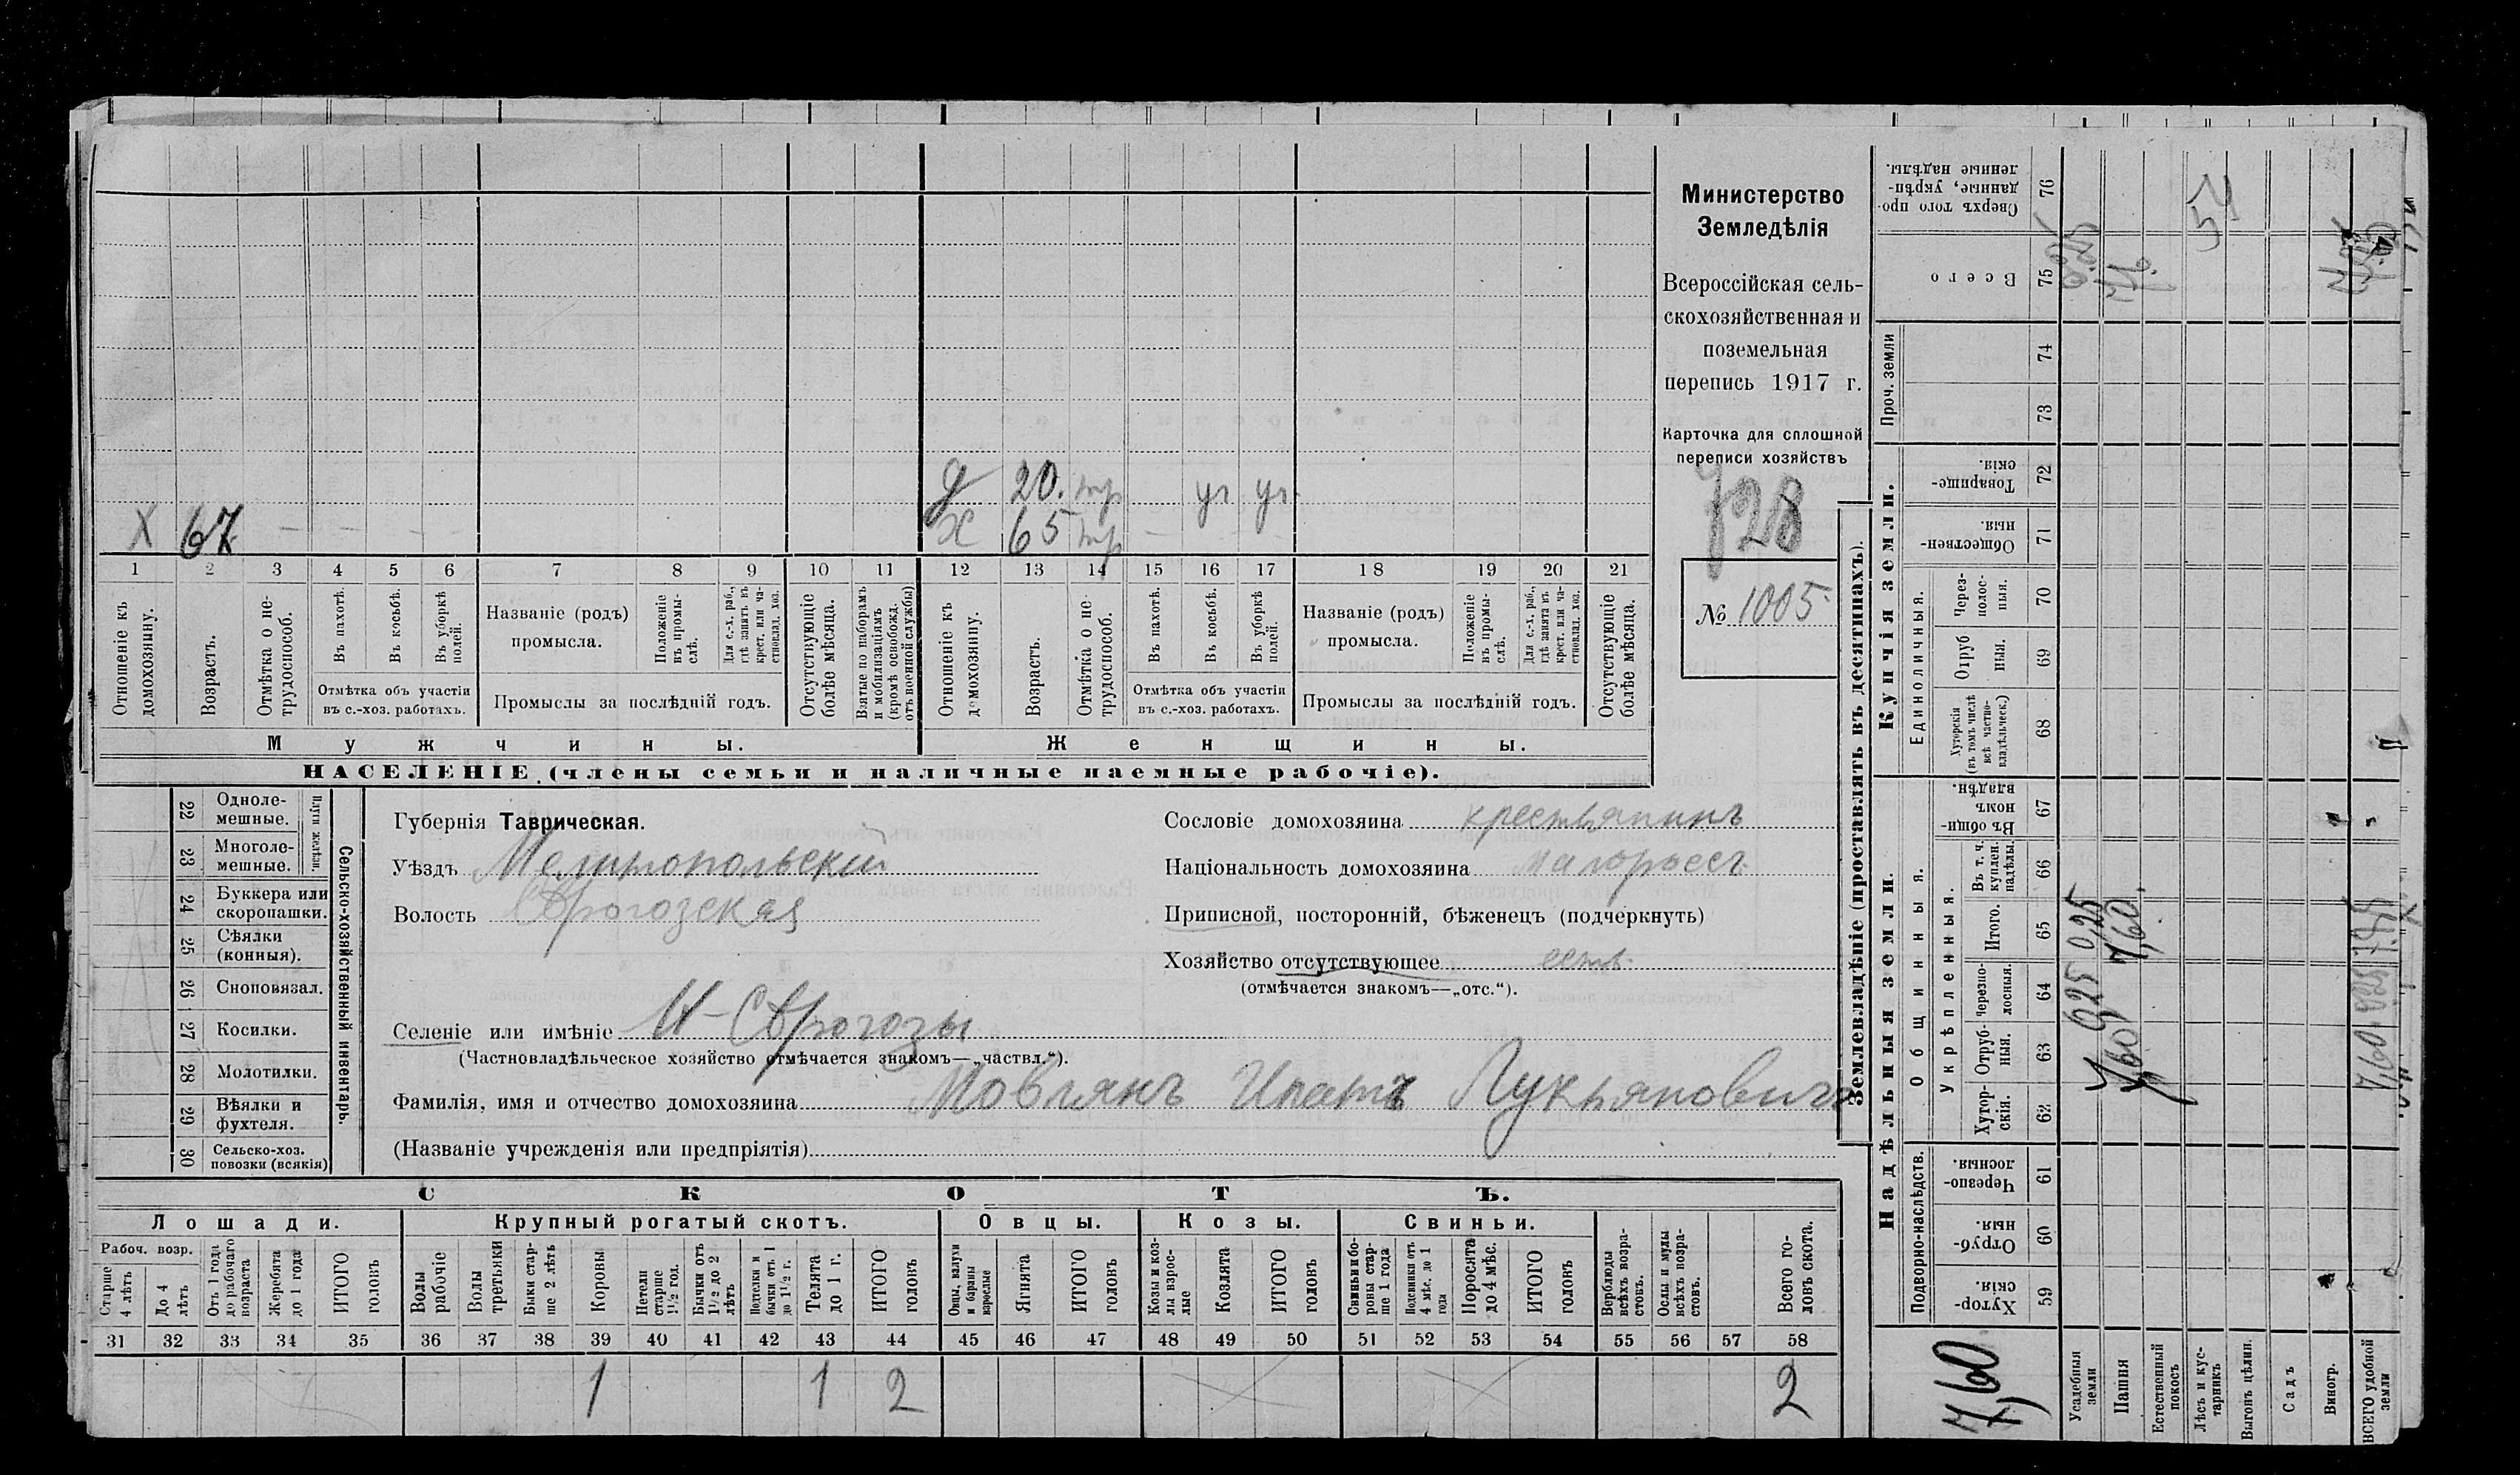 Министерство
Земледѣлія
Всероссійская сель-
скохозяйственная и
поземельная
перепись 1917 г.
Карточка для сплошной
переписи хозяйствъ
728
№ 1005
д 20. тр уг уг
Х 67 — — — — Х 65 тр — — —
1 2 3 4 5 6 7 8 9 10 11 12 13 14 15 16 17 18 19 20 21
Отношеніе къ домохозяину.
Возрастъ.
Отмѣтка о не-трудоспособ.
Въ пахотѣ.
Въ косьбѣ.
Въ уборкѣ полей.
Отмѣтка объ участіи
въ с.-хоз. работахъ.
Названіе (родъ)
промысла.
Положеніе въ промы-слѣ.
Для с.-х. раб., гдѣ занятъ въ крест. или ча-стновлад. хоз.
Промыслы за послѣдній годъ.
Отсутствующіе болѣе мѣсяца.
Взятые по наборамъ и мобилизаціямъ (кромѣ освобожд. отъ военной службы)
Отношеніе къ домохозяину.
Возрастъ.
Отмѣтка о не-трудоспособ.
Въ пахотѣ.
Въ косьбѣ.
Въ уборкѣ полей.
Отмѣтка объ участіи
въ с.-хоз. работахъ.
Названіе (родъ)
промысла.
Положеніе въ промы-слѣ.
Для с.-х. раб., гдѣ занята въ крест. или ча-стновлад. хоз.
Промыслы за послѣдній годъ.
Отсутствующіе болѣе мѣсяца.
Мужчины. Женщины.
НАСЕЛЕНІЕ (члены семьи и наличные наемные рабочіе).
Сельско-хозяйственный инвентарь.
Плуги желѣзн.
22 Одноле-мешные.
23 Многоле-мешные.
24 Буккера или скоропашки.
25 Сѣялки (конныя).
26 Сноповязал.
27 Косилки.
28 Молотилки.
29 Вѣялки и фухтеля.
30 Сельско-хоз. повозки (всякія)
Губернія Таврическая.
Уѣздъ Мелитопольскій
Волость
Селеніе или имѣніе
(Частновладѣльческое хозяйство отмѣчается знакомъ—„частвл.“).
Фамилія, имя и отчество домохозяина Мовлянъ Ипатъ Лукьяновичъ
(Названіе учрежденія или предпріятія)
Сословіе домохозяина крестьянинъ
Національность домохозяина малороссъ
Приписной, посторонній, бѣженецъ (подчеркнуть)
Хозяйство отсутствующее
(отмѣчается знакомъ—„отс.“).
СКОТЪ.
Лошади. Крупный рогатый скотъ. Овцы. Козы. Свиньи.
Рабоч. возр.
Старше 4 лѣтъ
До 4 лѣтъ
Отъ 1 года до рабочаго возраста
Жеребята до 1 года
ИТОГО головъ
Волы рабочіе
Волы третьяки
Быки стар-ше 2 лѣтъ
Коровы
Нетели старше 1½ год.
Бычки отъ 1½ до 2 лѣтъ
Подтелки и бычки отъ 1 до 1½ г.
Телята до 1 г.
ИТОГО головъ
Овцы, валухи и бараны взрослые
Ягнята
ИТОГО головъ
Козы и коз-лы взрос-лые
Козлята
ИТОГО головъ
Свиньи и бо-ровы стар-ше 1 года
Подсвинки отъ 4 мѣс. до 1 года
Поросята до 4 мѣс.
ИТОГО головъ
Верблюды всѣхъ возра-стовъ.
Ослы и мулы всѣхъ возра-стовъ.
Всего го-ловъ скота.
31 32 33 34 35 36 37 38 39 40 41 42 43 44 45 46 47 48 49 50 51 52 53 54 55 56 57 58
1 1 2 2
Землевладѣніе (проставлять въ десятинахъ).
Надѣльныя земли.
Подворно-наслѣдств.
Хутор-скія. 59
Отруб-ныя. 60
Черезпо-лосныя. 61
Общинныя.
Укрѣпленныя.
Хутор-скія. 62
Отруб-ныя. 63
Черезпо-лосныя. 64
Итого. 65
Въ т. ч. куплен. надѣлы. 66
Въ общи-номъ владѣн. 67
Купчія земли.
Единоличныя.
Хуторскія (въ томъ числѣ всѣ частно-владѣльческ.) 68
Отруб ныя. 69
Через-полос-ныя. 70
Обществен-ныя. 71
Товарище-скія. 72
Проч. земли
73 74
Всего 75
Сверхъ того про-данные, укрѣп-ленные надѣлы. 76
7,60
Усадебныя земли
0,25 0,25
Пашня
7,60 7,60.
Естественный покосъ
Лѣсъ и кус-тарникъ
54
Выгонъ цѣлин.
Садъ
Виногр.
ВСЕГО удобной земли